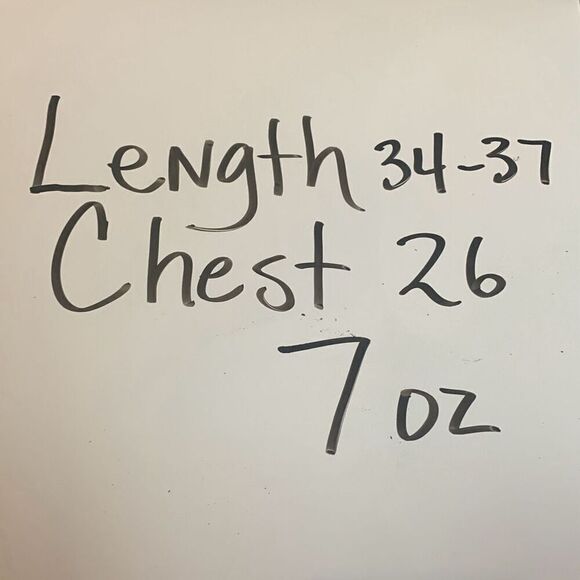 Length 34-37
Chest 26
7 oz